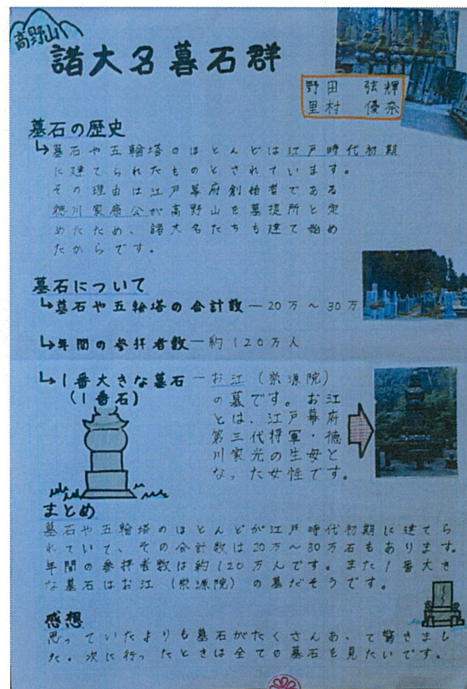 高野山
諸大名墓石群
野田 弦輝
里村 優奈
墓石の歴史
↳墓石や五輪塔のほとんどは江戸時代初期
に建てられたものとされています。
その理由は江戸幕府創始者である
徳川家康公が高野山を菩提所と定
めたため、諸大名たちも建て始め
たからです。
墓石について
↳墓石や五輪塔の合計数―20万〜30万
↳年間の参拝者数―約120万人
↳1番大きな墓石―お江(崇源院)
(1番石)
の墓です。お江
とは、江戸幕府
第三代将軍・徳
川家光の生母と
なった女性です。
まとめ
墓石や五輪塔のほとんどが江戸時代初期に建てら
れていて、その合計数は20万〜30万石もあります。
年間の参拝者数は約120万人です。また1番大き
な墓石はお江(崇源院)の墓だそうです。
感想
思っていたよりも墓石がたくさんあって驚きまし
た。次に行ったときは全ての墓石を見たいです。